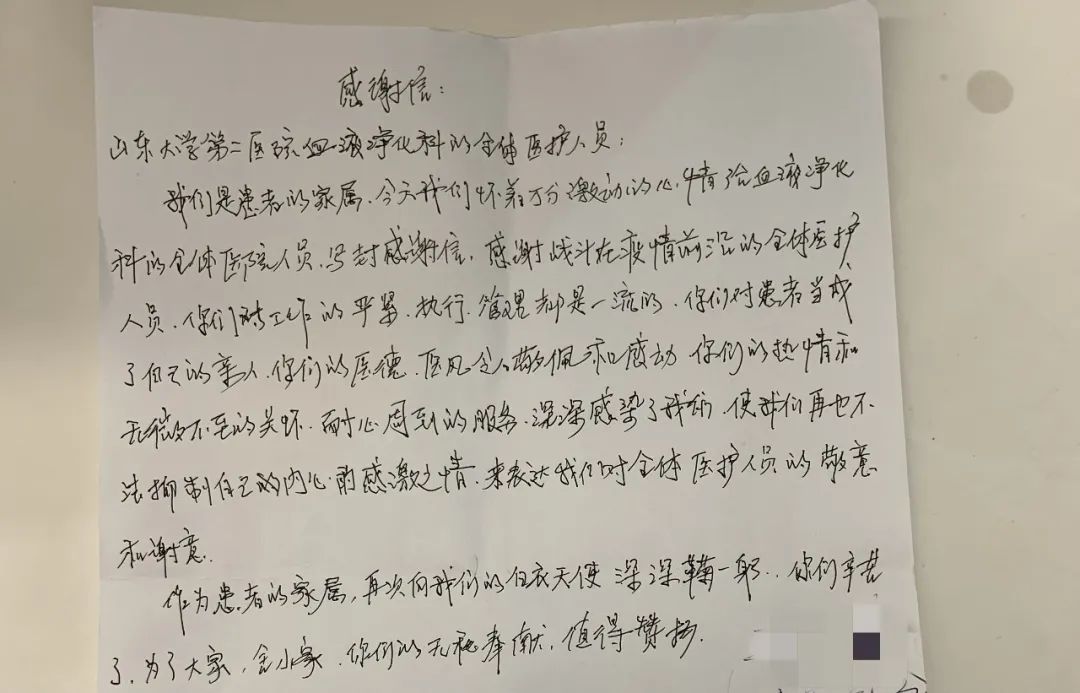 感谢信:
山东大学第二医院血液净化科的全体医护人员:
我们是患者的家属,今天我们怀着万分激动的心情给血液净化
科的全体医院人员,写封感谢信,感谢战斗在疫情前沿的全体医护
人员,你们对工作的严紧、执行、管理都是一流的,你们对患者当成
了自己的亲人,你们的医德、医风令人敬佩和感动,你们的热情和
无微不至的关怀、耐心周到的服务、深深感染了我们,使我们再也不
法抑制自己的内心的感激之情,来表达我们对全体医护人员的敬意
和谢意.
作为患者的家属,再次向我们的白衣天使深深鞠一躬..你们辛苦
了、为了大家,舍小家,你们的无私奉献,值得赞扬.